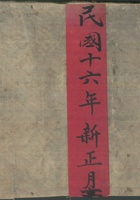 民國十六年新正月